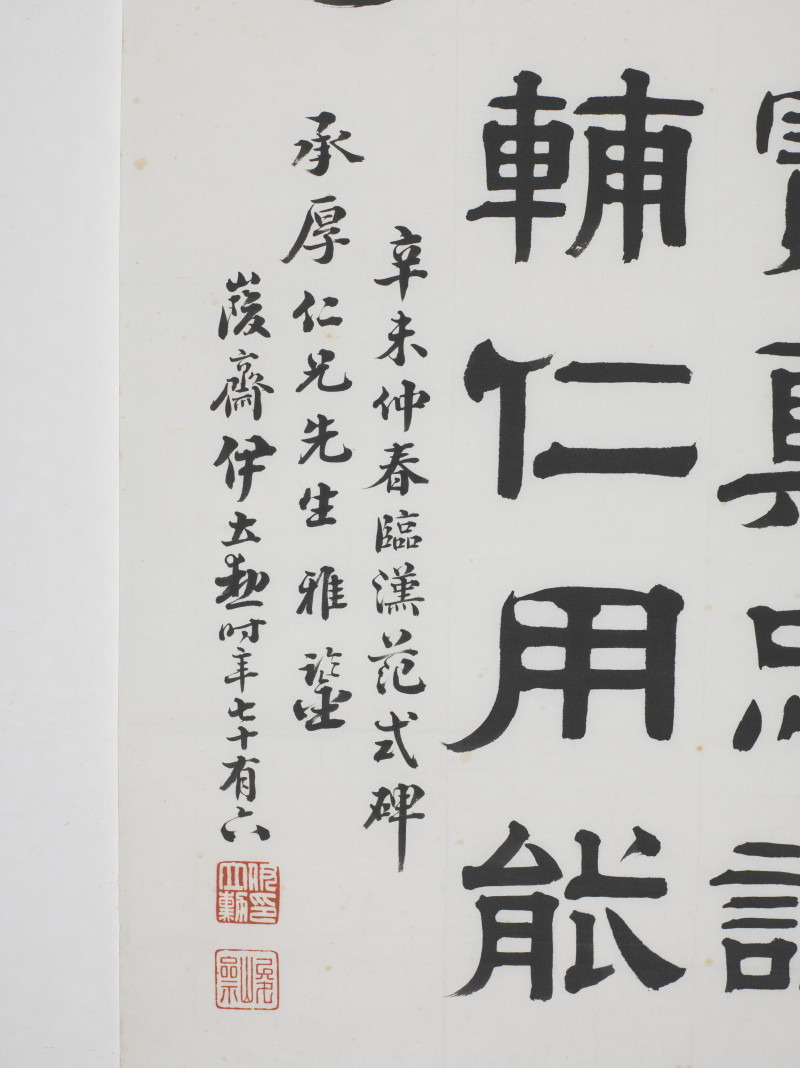 輔仁用能
辛未仲春臨漢范式碑
承厚仁兄先生雅鑒
峻齋伊立勳時年七十有六
伊立勳印
峻齋